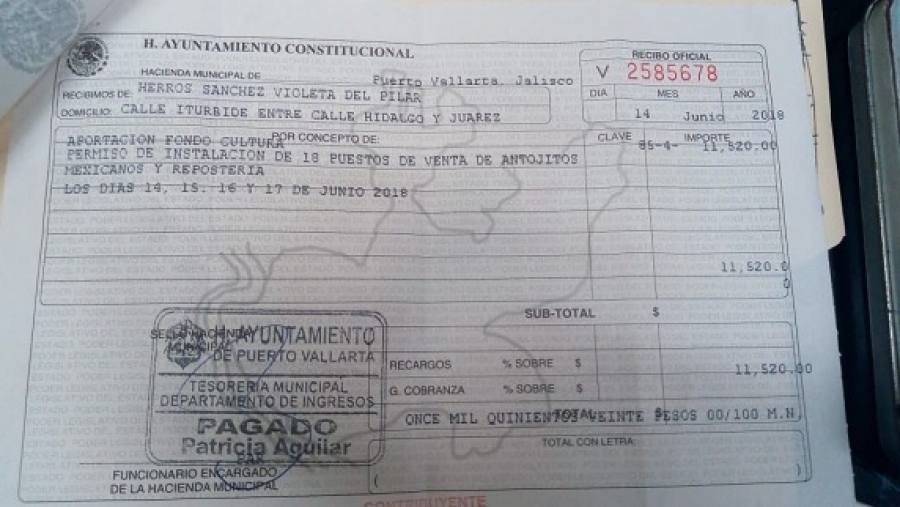 H. AYUNTAMIENTO CONSTITUCIONAL
HACIENDA MUNICIPAL DE Puerto Vallarta, Jalisco
RECIBIMOS DE: HERROS SANCHEZ VIOLETA DEL PILAR
DOMICILIO: CALLE ITURBIDE ENTRE CALLE HIDALGO Y JUAREZ
RECIBO OFICIAL
V 2585678
DIA MES AÑO
14 Junio 2018
POR CONCEPTO DE: CLAVE IMPORTE
APORTACION FONDO CULTURA 85-4- 11,520.00
PERMISO DE INSTALACION DE 18 PUESTOS DE VENTA DE ANTOJITOS
MEXICANOS Y REPOSTERIA
LOS DIAS 14, 15. 16 Y 17 DE JUNIO 2018
11,520.0
0
SUB-TOTAL $
RECARGOS % SOBRE $ 11,520.00
G. COBRANZA % SOBRE $
TOTAL $
ONCE MIL QUINIENTOS VEINTE PESOS 00/100 M.N.
TOTAL CON LETRA
( )
SELLO HACIENDA
MUNICIPAL
AYUNTAMIENTO
DE PUERTO VALLARTA
TESORERÍA MUNICIPAL
DEPARTAMENTO DE INGRESOS
PAGADO
Patricia Aguilar
FUNCIONARIO ENCARGADO
DE LA HACIENDA MUNICIPAL
CONTRIBUYENTE